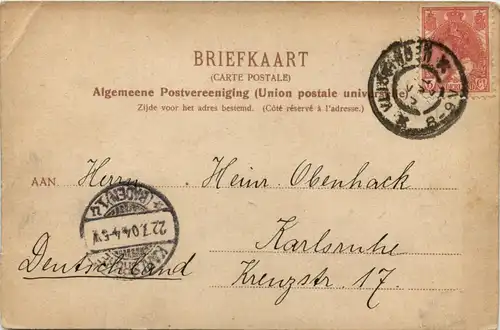 BRIEFKAART
(CARTE POSTALE)
Algemeene Postvereeniging (Union postale univer
Zijde voor het adres bestemd. (Côté réservé à l'adresse.)
8-9V
AAN Herrn Heinr. Obenhack
(BADEN) 1 u
22.7.04.4-5V.
Karlsruhe
Deutschland Krenzstr. 17.